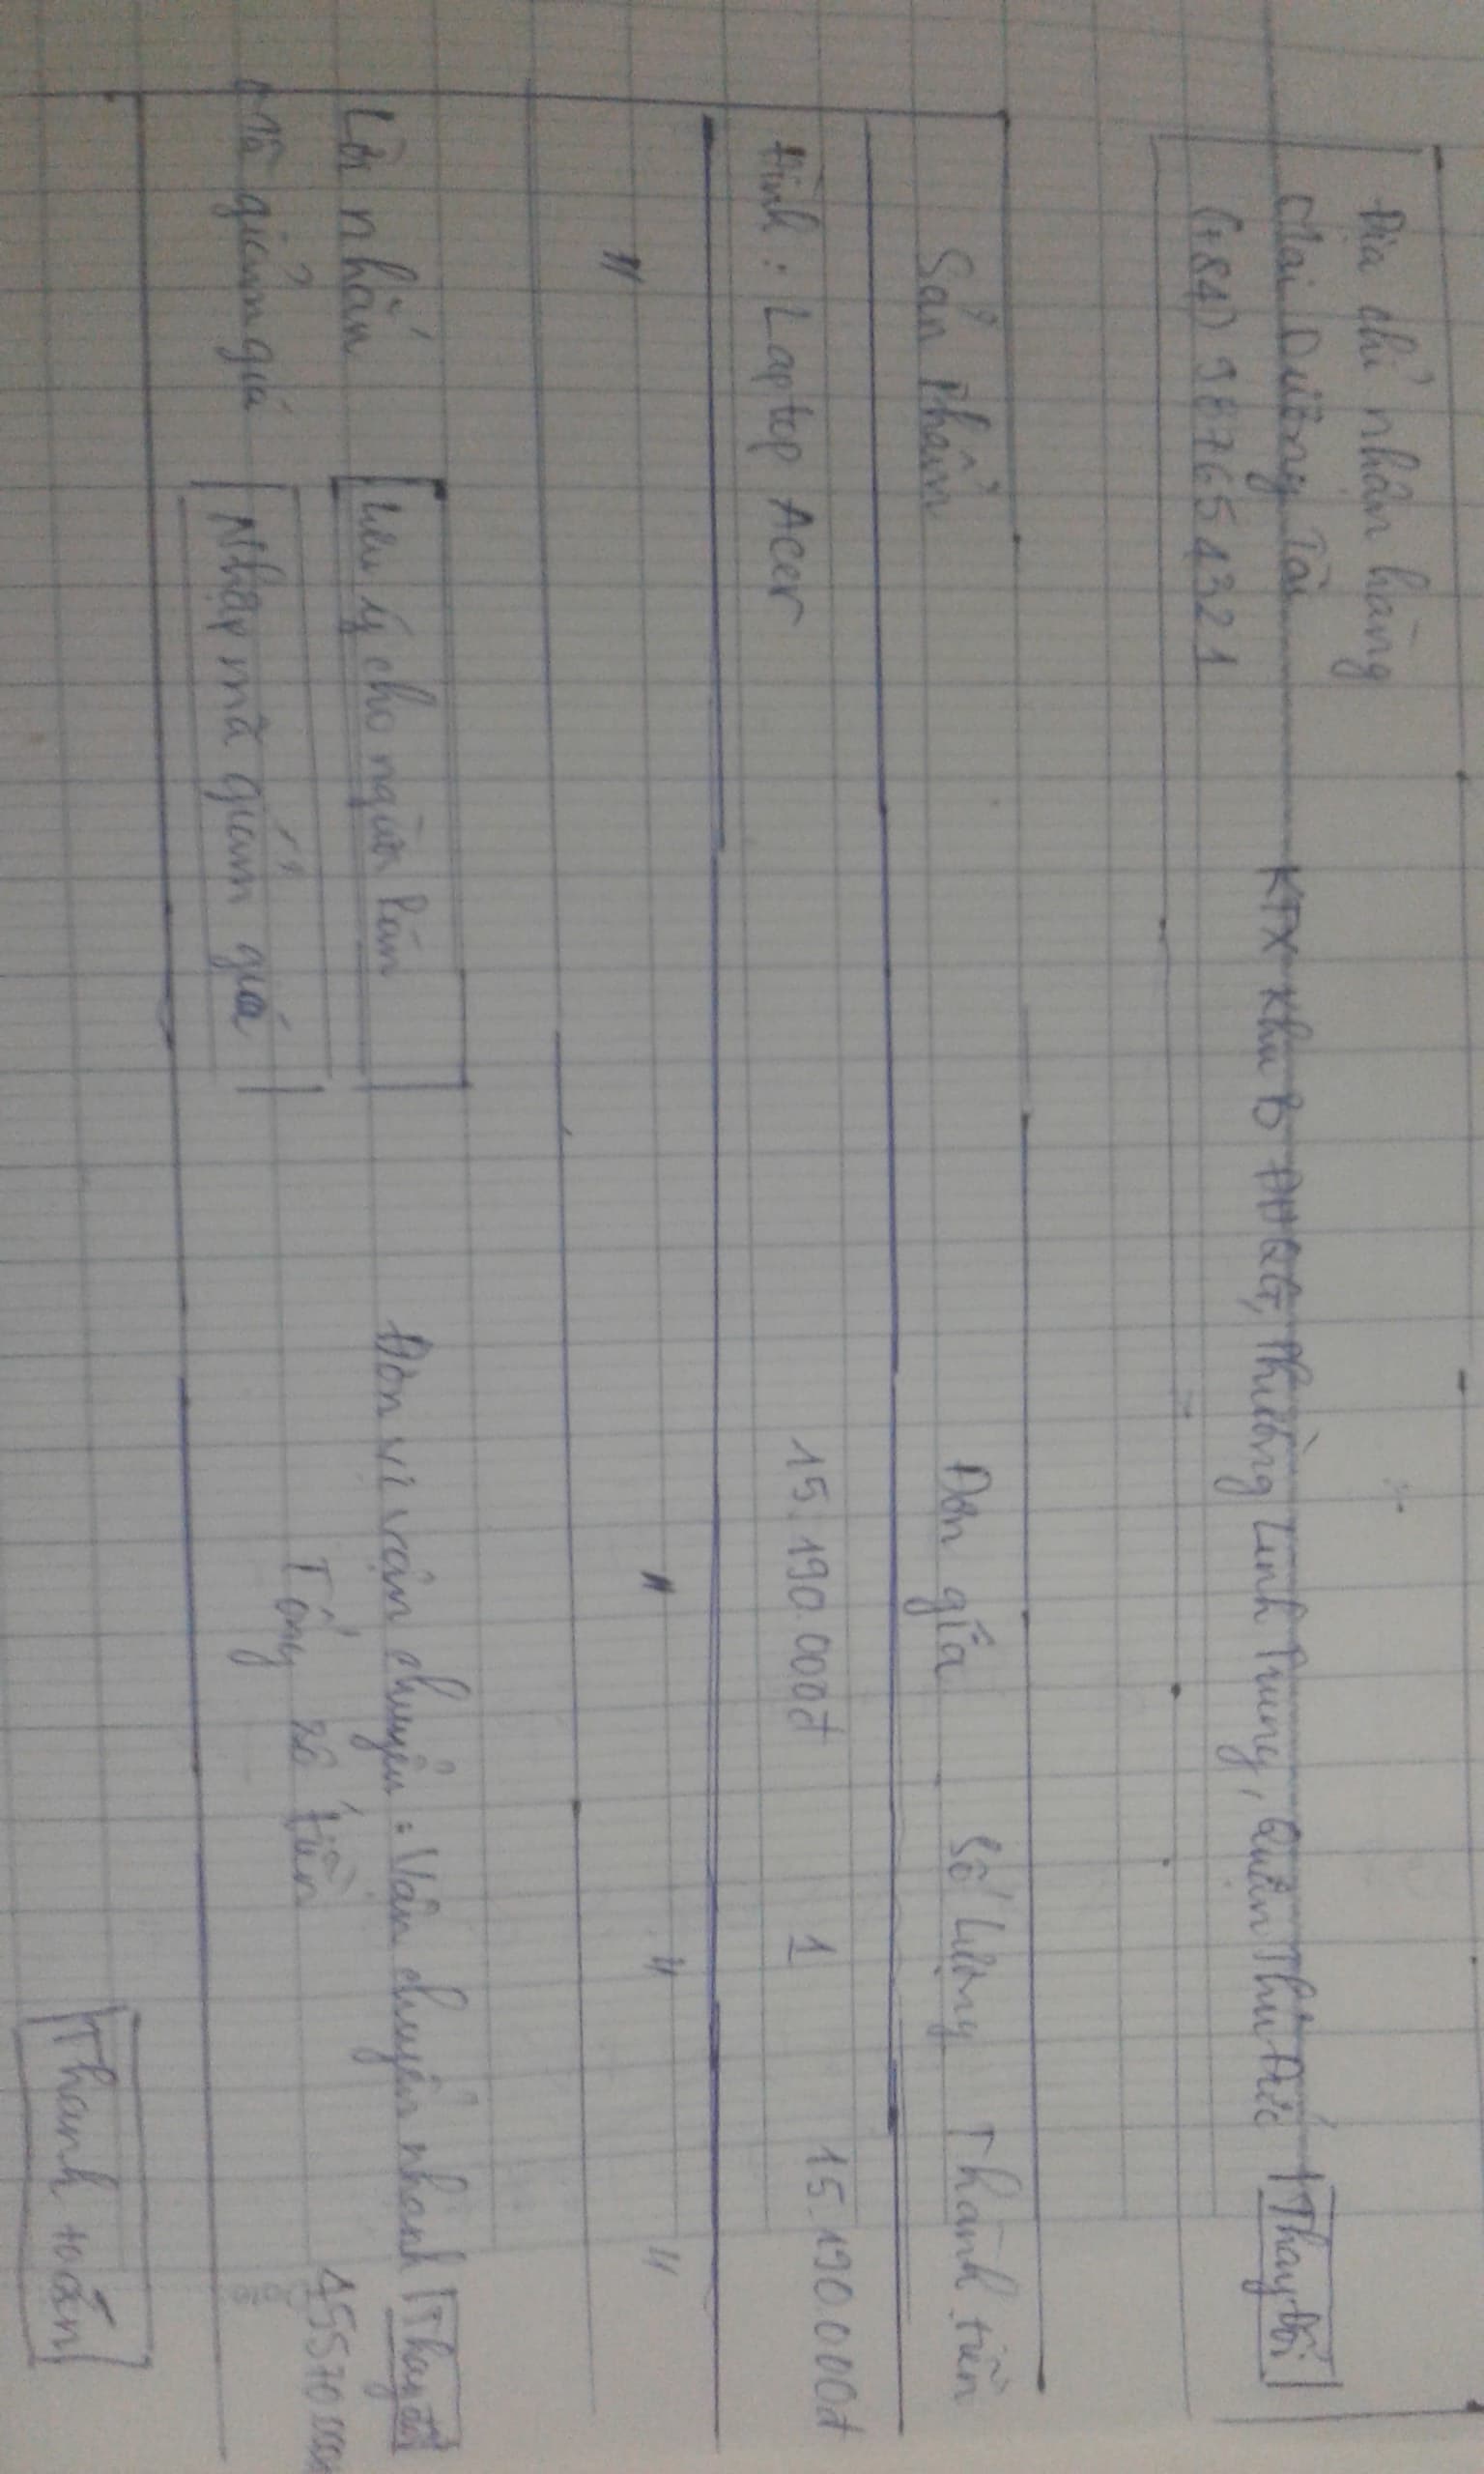 Địa chỉ nhận hàng
Mai Dương Tài KTX Khu B ĐHQG, Phường Linh Trung, Quận Thủ Đức Thay đổi
(+84) 987654321
Sản Phẩm Đơn giá Số lượng Thành tiền
Hình : Laptop Acer 15.190.000đ 1 15.190.000đ
" " " "
Lời nhắn Lưu ý cho người bán Đơn vị vận chuyển : Vận chuyển nhanh Thay đổi
Mã giảm giá Nhập mã giảm giá Tổng số tiền
Thanh toán